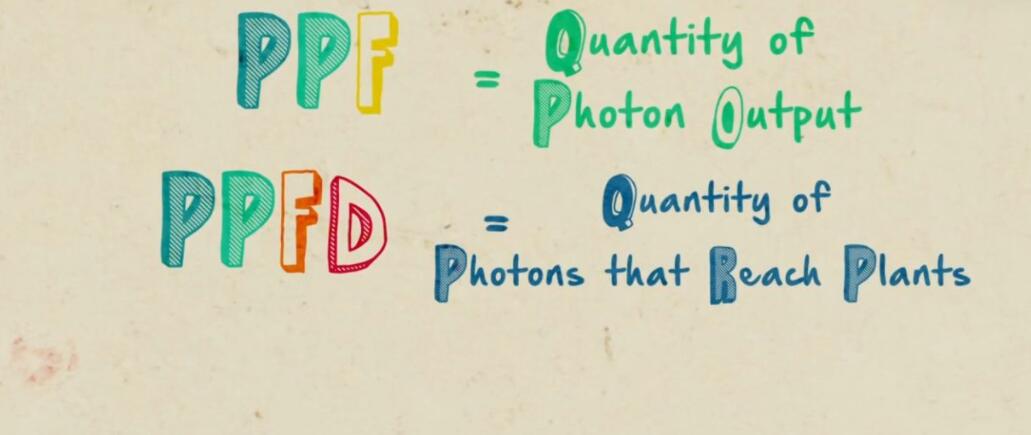 PPF = Quantity of
Photon Output
PPFD = Quantity of
Photons that Reach Plants